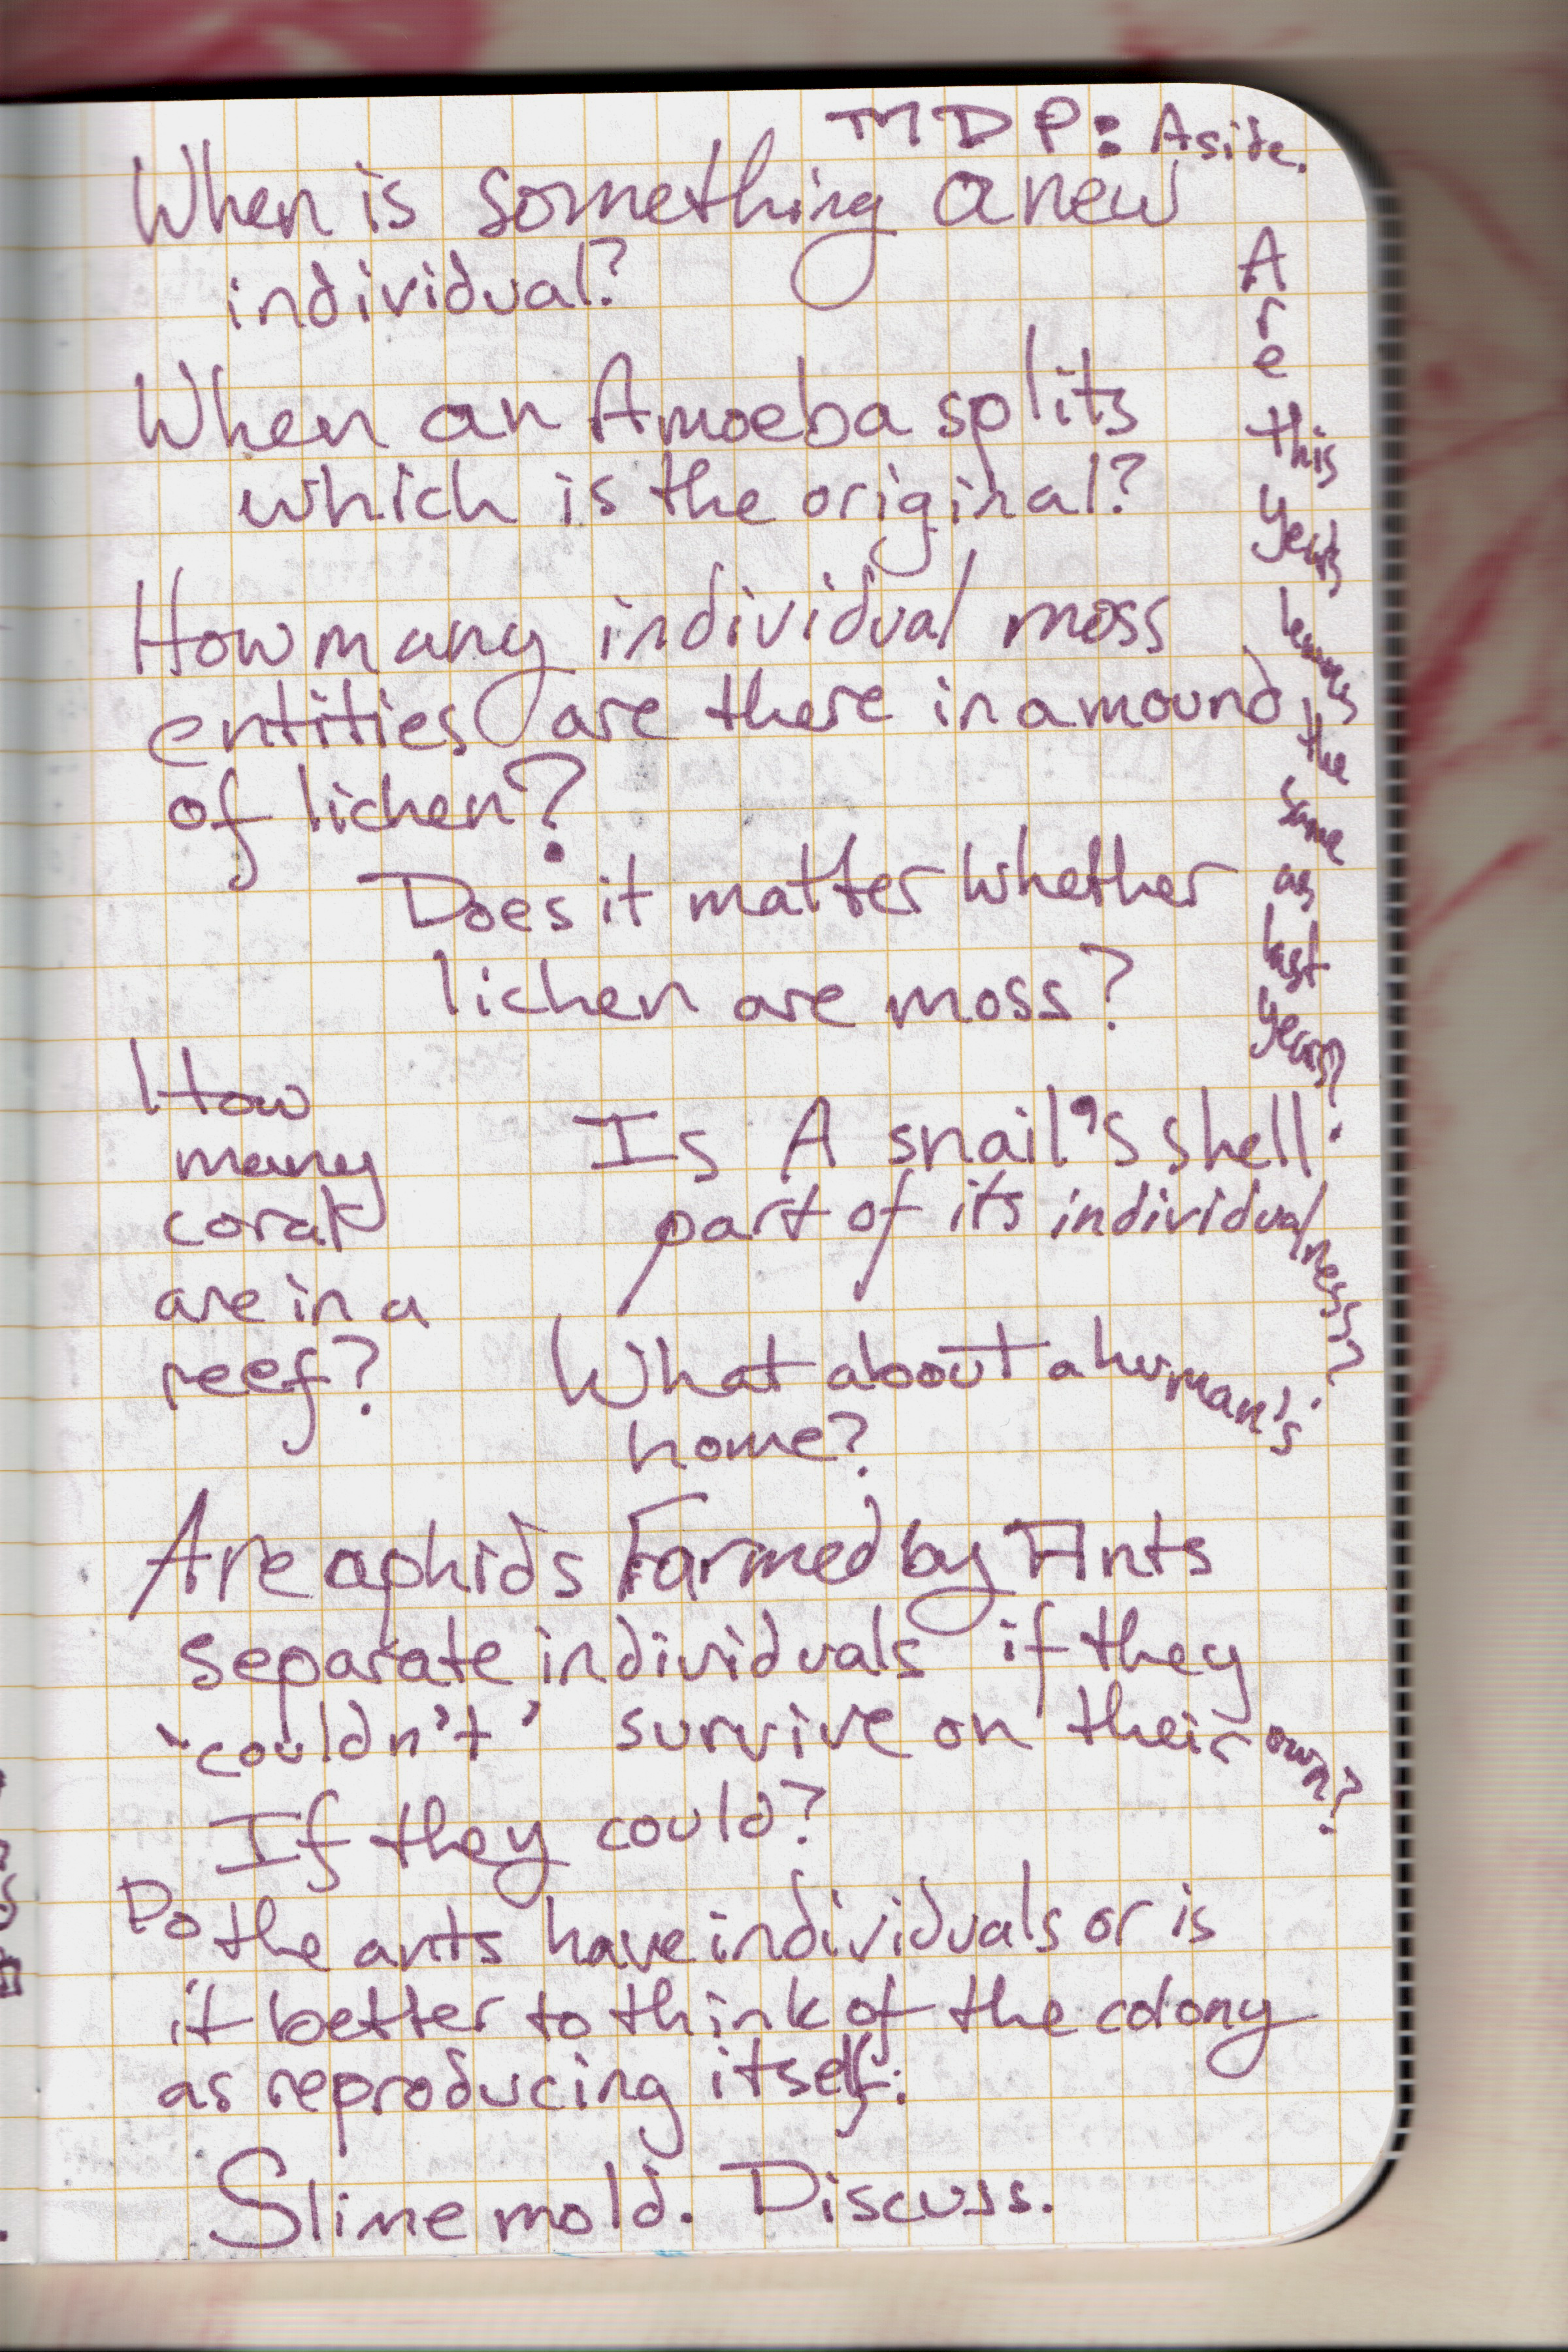 MDP: Aside.
When is something a new
individual?
When an Amoeba splits
which is the original?
How many individual moss
entities are there in a mound
of lichen?
Does it matter whether
lichen are moss?
A
r
e
this
years
the
same
as
last
years?
How
many
coral
are in a
reef?
Is A snail's shell
part of its individualness?
What about a human's
home?
Are aphids Farmed by Ants
separate individuals if they
'couldn't' survive on their own?
If they could?
Do the ants have individuals or is
it better to think of the colony
as reproducing itself.
Slime mold. Discuss.